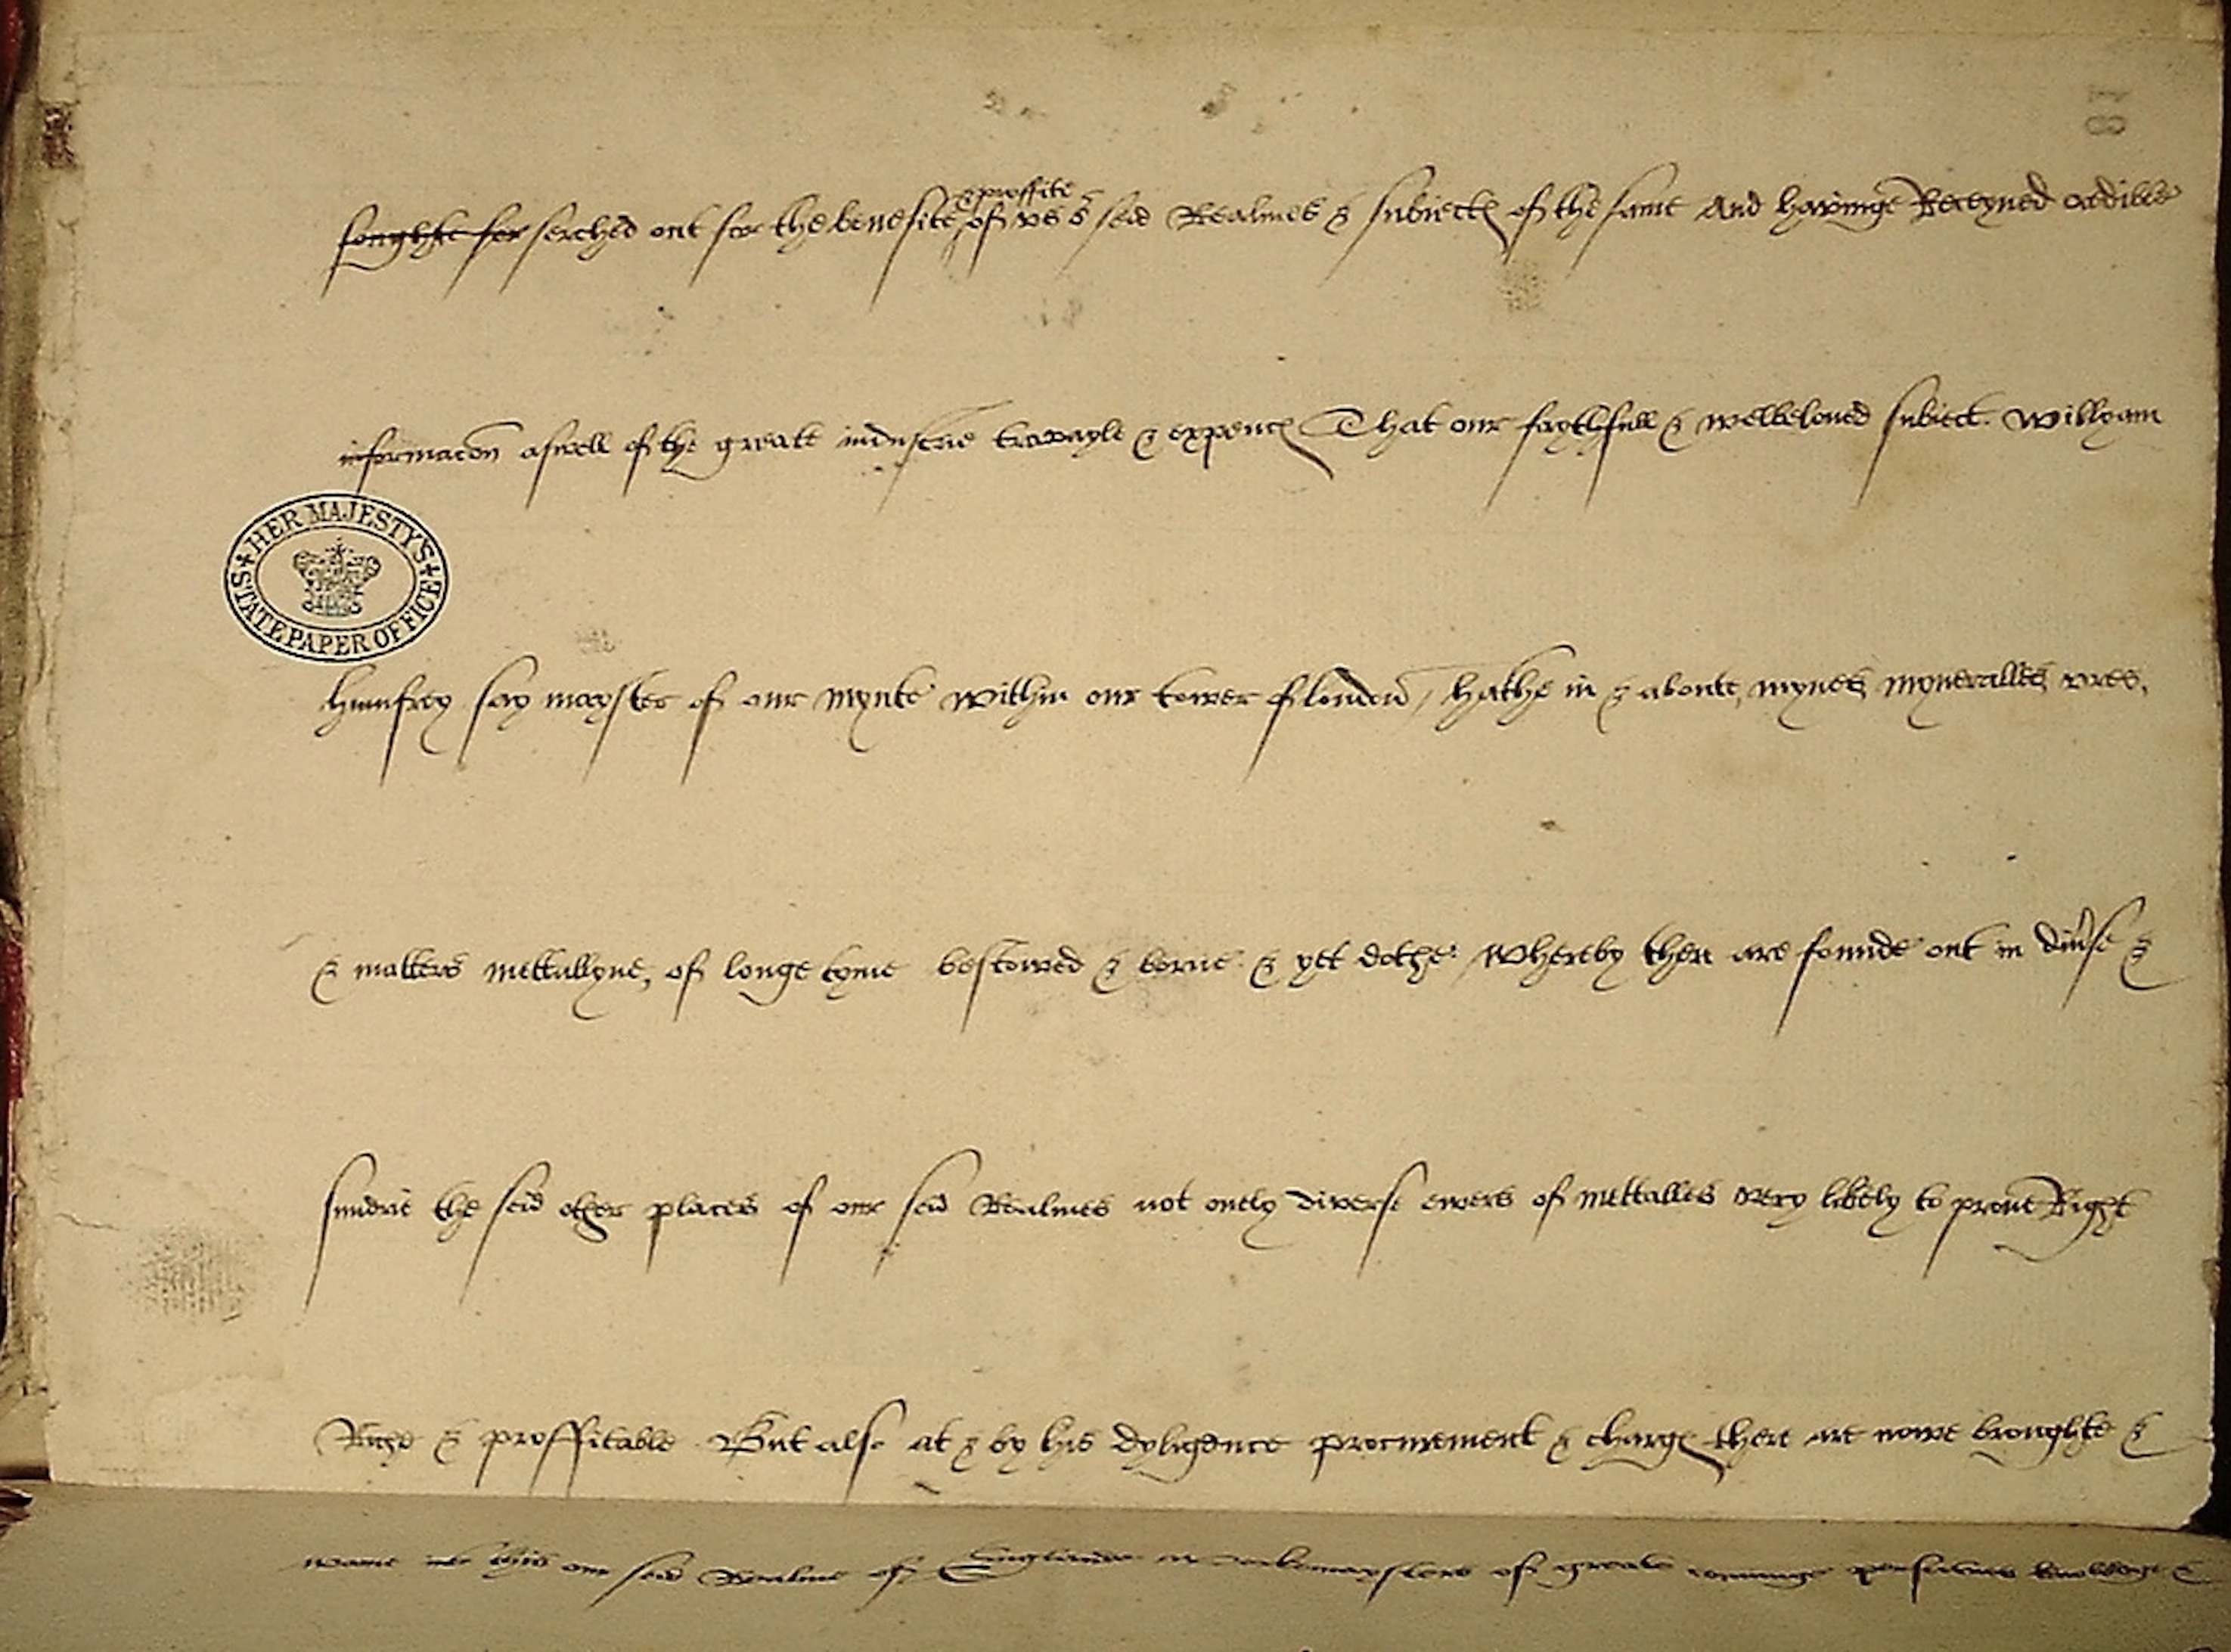 & proffite
soughte for serched out for the benefite of us & seid Realmes & subiectes of the same And havinge Receyved credible
informacon aswell of the greate industrie travayle & expences That our faythfull & welbeloved subiect Willyam
humfrey say mayster of our mynte within our tower of london, hathe in & aboute, mynes, myneralles ores,
& matters mettallyne, of longe tyme bestowed & borne & yet dothe Whereby there are founde out in div'se &
sundrie the seid other places of our seid Realmes not onely diverse ewers of mettalles very likely to prove Right
Riche & proffitable But also at & by his dyligence procurement & charges there are nowe broughte &
this our seid Realme of Englande of greate conninge knowledge &
HER MAJESTY'S STATE PAPER OFFICE
18